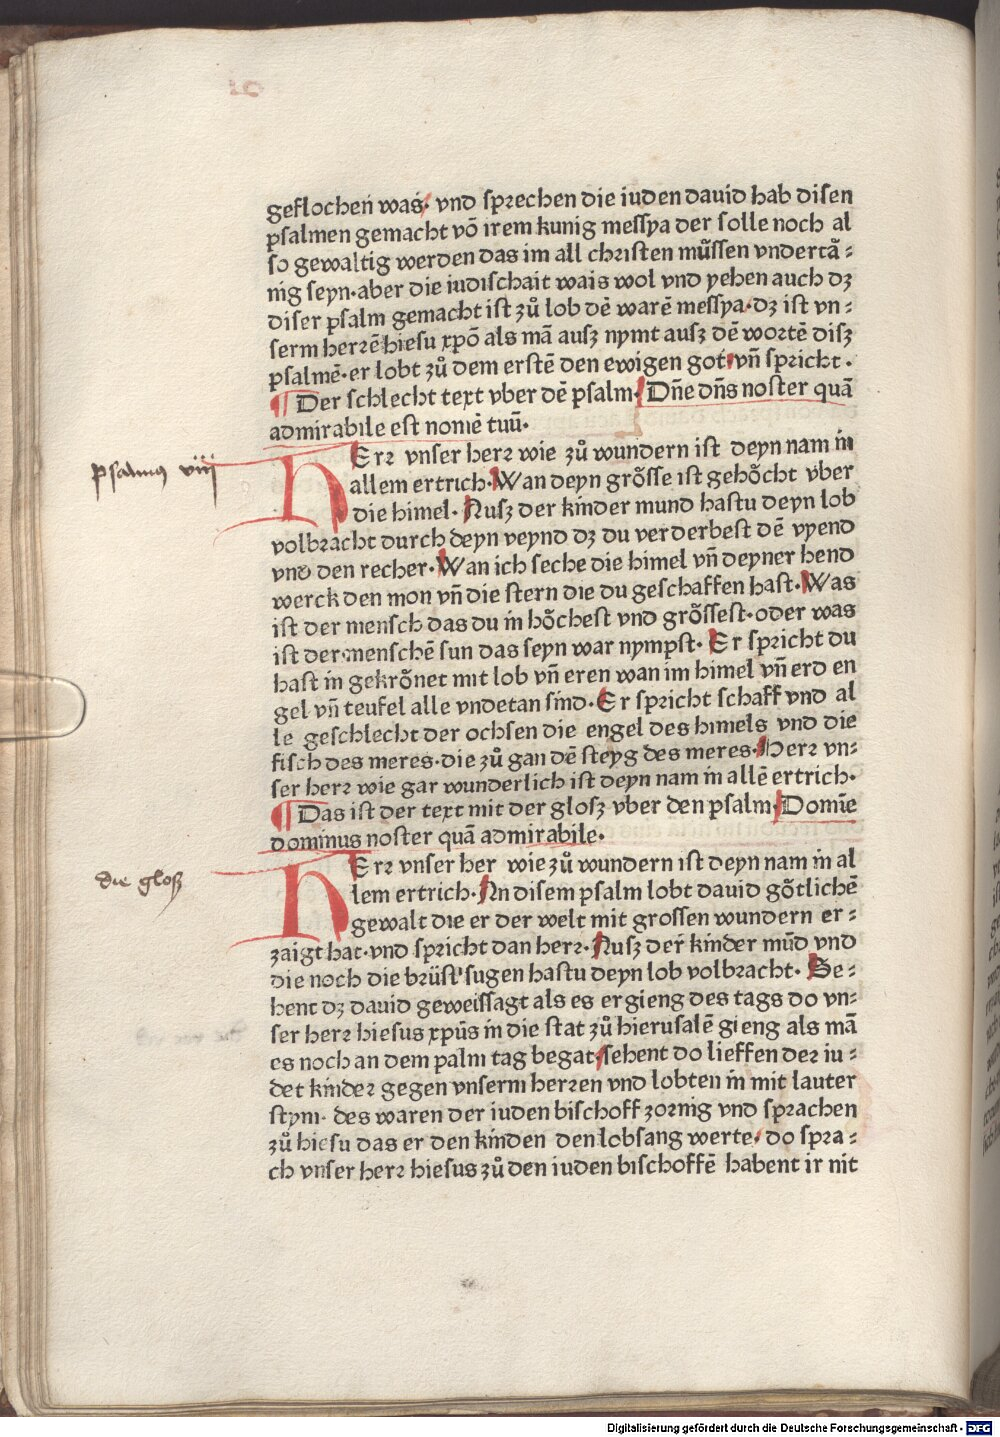 geflochen was· vnd sprechen die iuden dauid hab disen
psalmen gemacht võ irem kunig messya der solle noch al
so gewaltig werden das im all christen müssen vndertå⸗
nig seyn·aber die iudischait wais wol vnd yehen auch dʒ
diser psalm gemacht ist zů lob dē warē messya·dʒ ist vn⸗
serm herrē hiesu xpō als mā ausz nymt ausz dē wortē disz
psalmē·er lobt zů dem erstē den ewigen got·vn̄ spricht·
¶ Der schlecht text vber dē psalm· Dn̄e dn̄s noster quā
admirabile est nomē tuū·
psalmus viii
HErr vnser herr wie zů wundern ist deyn nam in
allem ertrich·Wan deyn grősse ist gehőcht vber
die himel· Ausz der kinder mund hastu deyn lob
volbracht durch deyn veynd dʒ du verderbest dē vyend
vnd den recher·Wan ich seche die himel vn̄ deyner hend
werck den mon vn̄ die stern die du geschaffen hast·Was
ist der mensch das du in hőchest vnd grőssest·oder was
ist der menschē sun das seyn war nympst· Er spricht du
hast in gekrőnet mit lob vn̄ eren wan im himel vn̄ erd en
gel vn̄ teufel alle vndetan sind·Er spricht schaff vnd al
le geschlecht der ochsen die engel des himels vnd die
fisch des meres·die zů gan dē steyg des meres·Herr vn⸗
ser herr wie gar wunderlich ist deyn nam in allē ertrich·
¶ Das ist der text mit der glosz vber den psalm·Domīe
dominus noster quā admirabile·
die glosz
HErr vnser her wie zů wundern ist deyn nam in al
lem ertrich·An disem psalm lobt dauid gőtlichē
gewalt die er der welt mit grossen wundern er⸗
zaigt hat·vnd spricht dan herr·Ausz der kinder mūd vnd
die noch die brüst sugen hastu deyn lob volbracht· Se⸗
hent dʒ dauid geweissagt als es ergieng des tags do vn⸗
ser herr hiesus xpūs in die stat zů hierusalē gieng als mā
es noch an dem palm tag begat·sehent do lieffen der iu⸗
det kinder gegen vnserm herren vnd lobten in mit lauter
stym· des waren der iuden bischoff zornig vnd sprachen
zů hiesu das er den kinden den lobsang werte· do spra⸗
ch vnser herr hiesus zů den iuden bischoffē habent ir nit
Digitalisierung gefördert durch die Deutsche Forschungsgemeinschaft - DFG